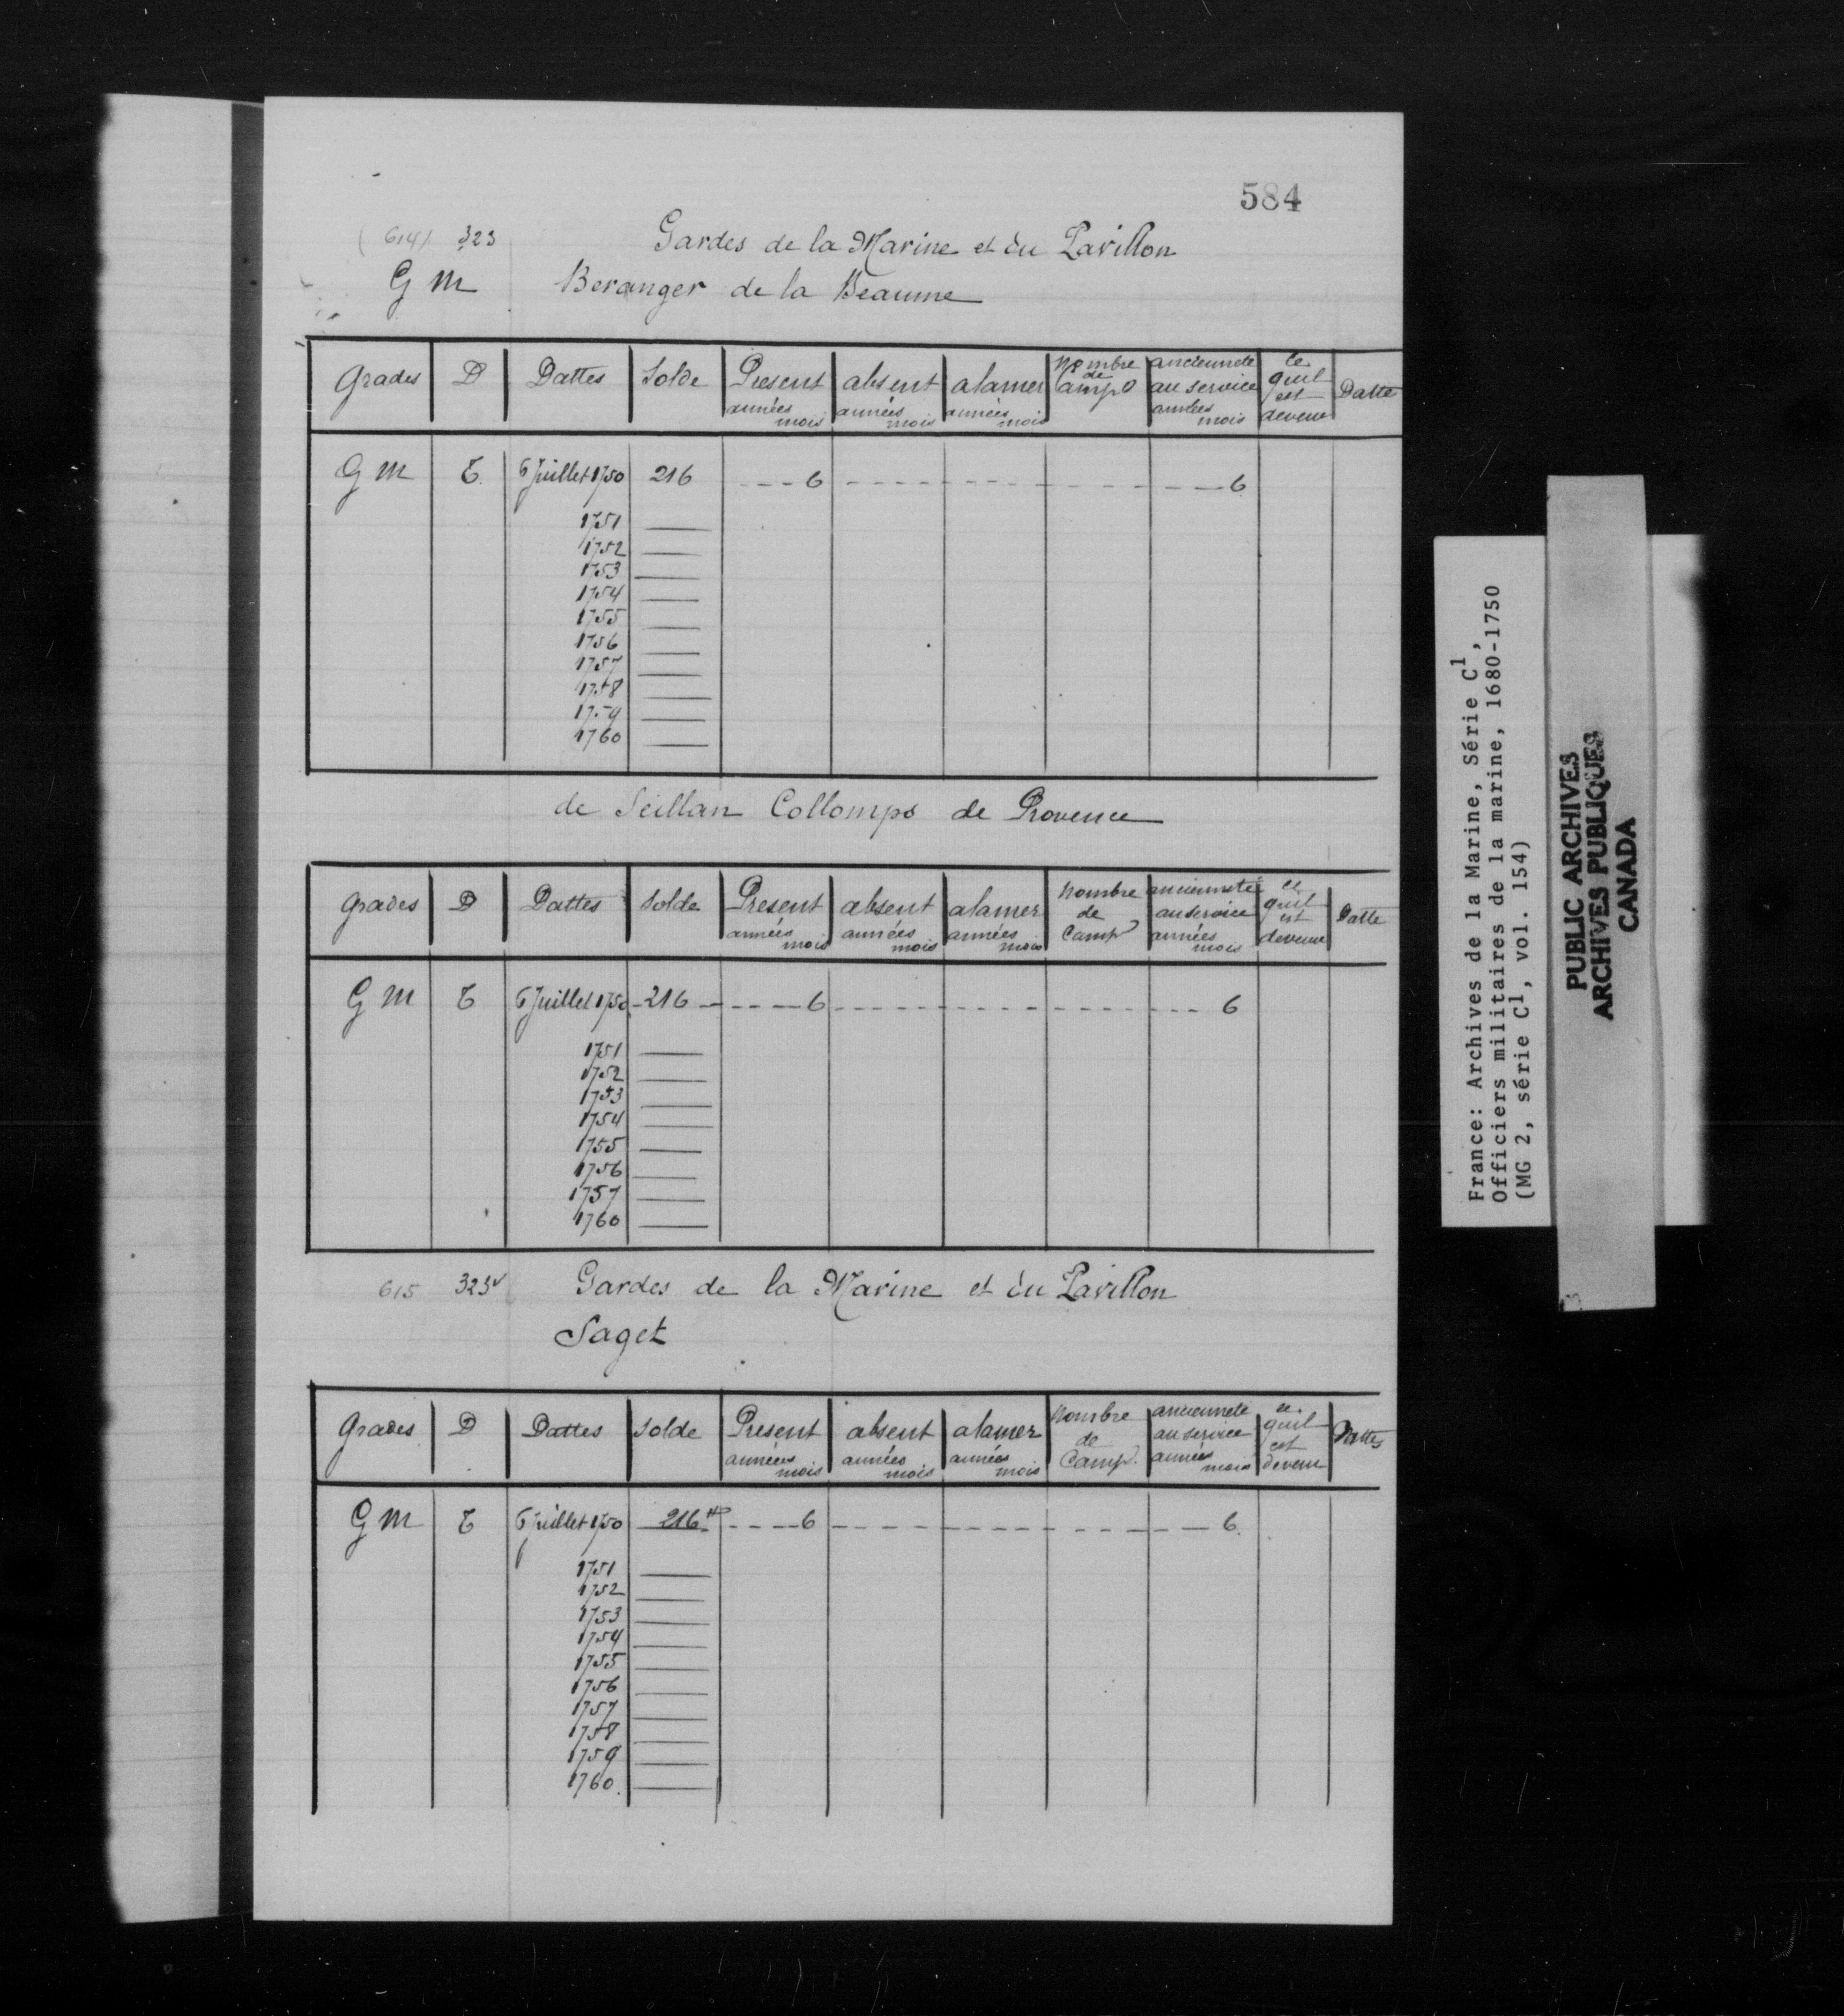 584
(614) 323 Gardes de la Marine et du Pavillon
G M Beranger de la Beaume
Grades D Dattes Solde Present années mois absent années mois alamer années mois Nombre de Camp ancienneté au service années mois Ce quil est devenu Datte
G M T. 6 Juillet 1750 216 ---- 6 ---- 6
1751 ——
1752 ——
1753 ——
1754 ——
1755 ——
1756 ——
1757 ——
1758 ——
1759 ——
1760 ——
de Seillan Collomps de Provence
Grades D Dattes Solde Present années mois absent années mois alamer années mois Nombre de Camp ancienneté au service années mois ce quil est devenu Datte
G M T 6 Juillet 1750 -216- ---- 6 ---- 6
1751 ——
1752 ——
1753 ——
1754 ——
1755 ——
1756 ——
1757 ——
1760 ——
615 323v Gardes de la Marine et du Pavillon
Saget
Grades D Dattes Solde Present années mois absent années mois alamer années mois Nombre de Camp. ancienneté au service années mois ce quil est devenu Dattes
G M T 6 Juillet 1750 216# ---- 6 ---- 6.
1751 ——
1752 ——
1753 ——
1754 ——
1755 ——
1756 ——
1757 ——
1758 ——
1759 ——
1760. ——
France: Archives de la Marine, Série C1,
Officiers militaires de la marine, 1680-1750
(MG 2, série C1, vol. 154)
PUBLIC ARCHIVES
ARCHIVES PUBLIQUES
CANADA